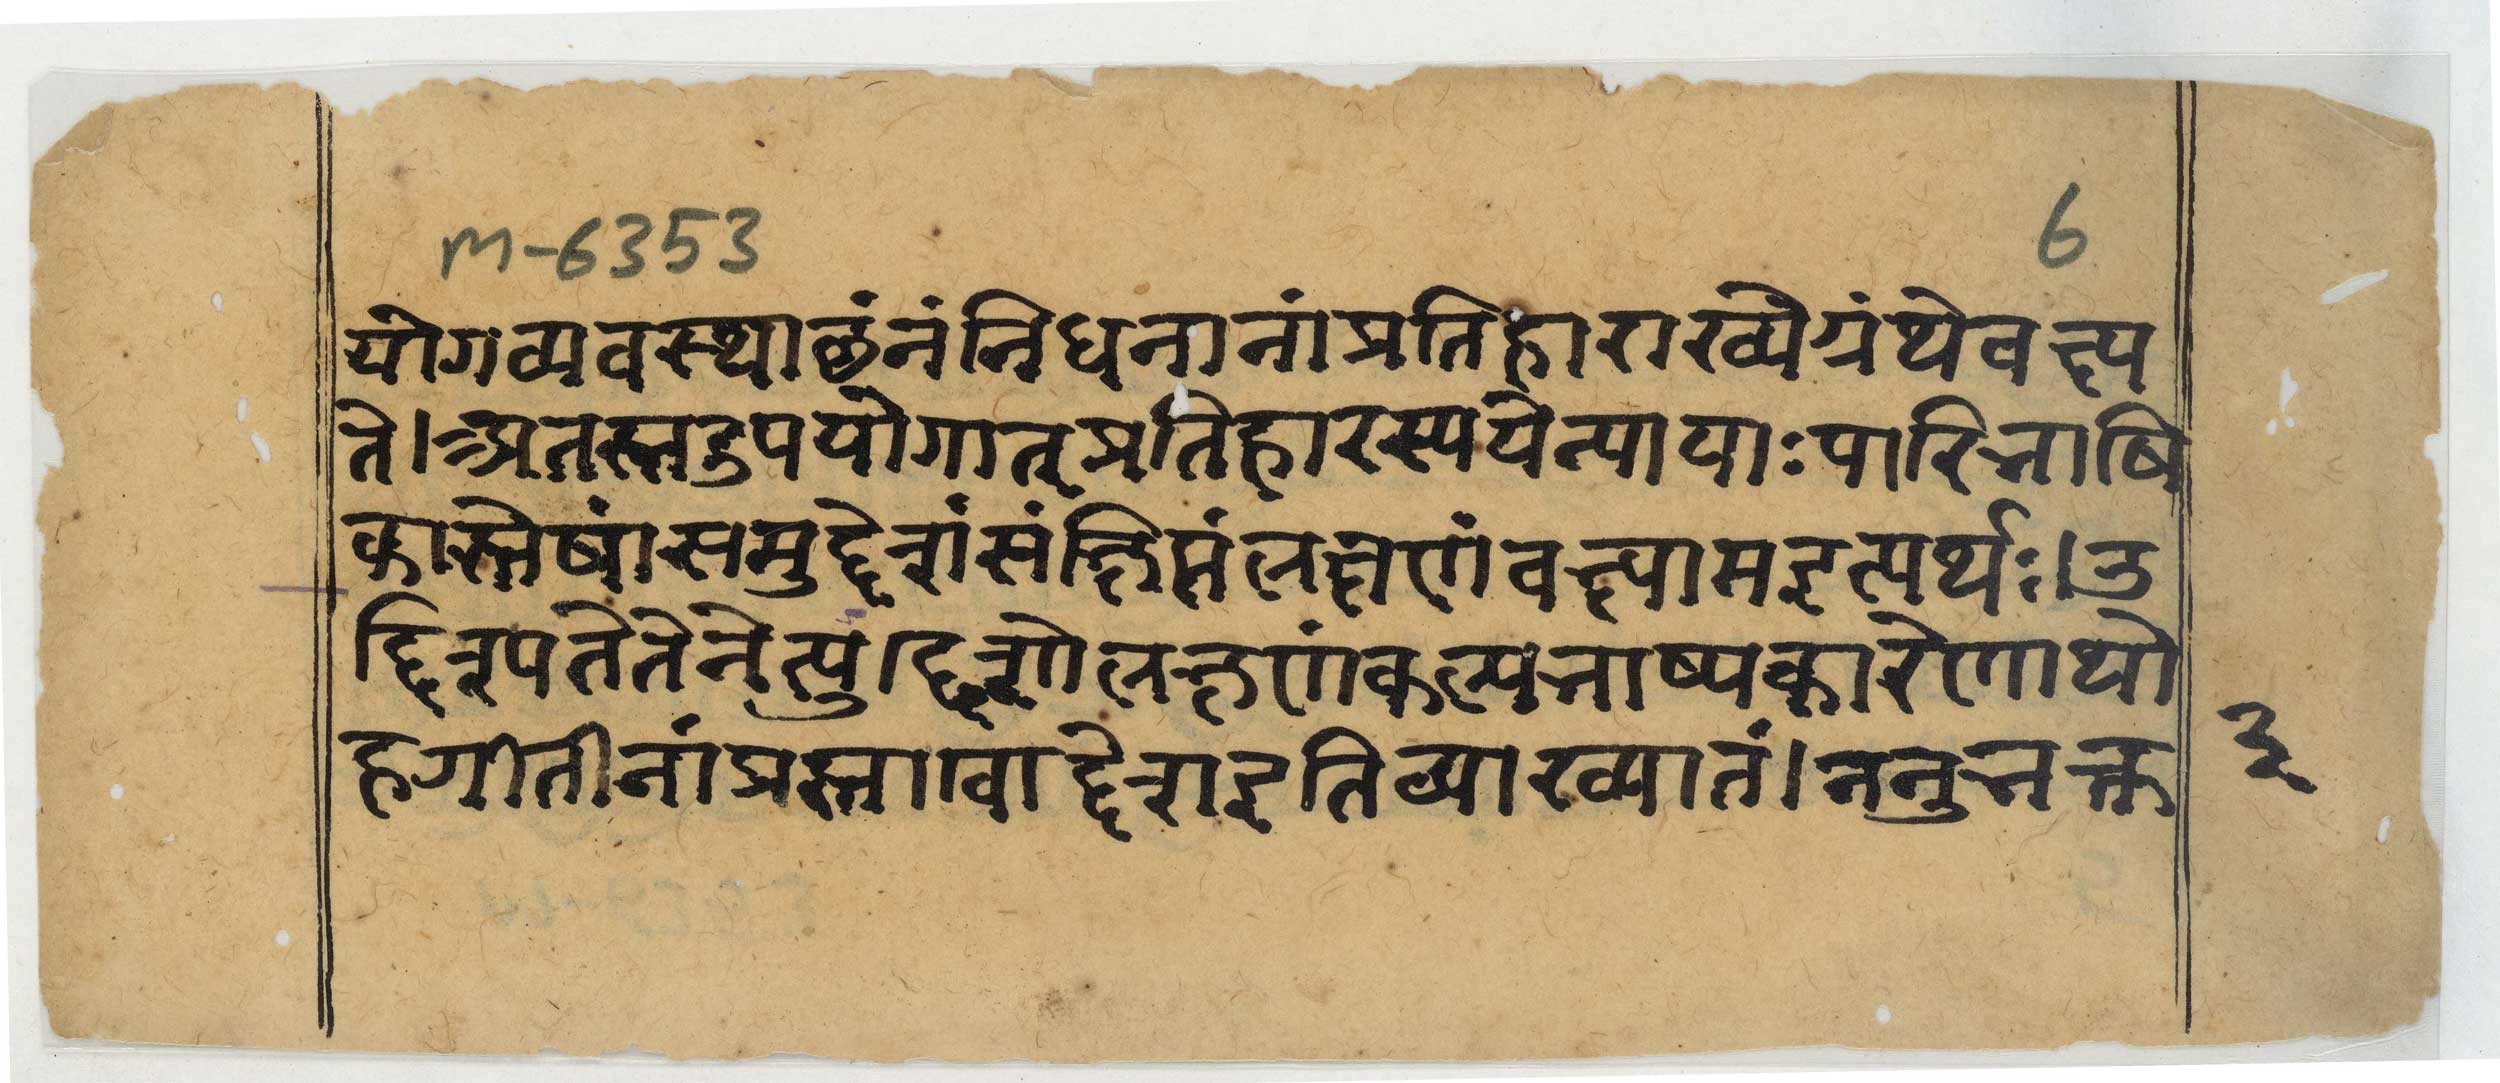 m-6353
6
योगव्यवस्थाछंनंनिधनानांप्रतिहाराख्येग्रंथेवक्ष्य
ते।अतस्तदुपयोगात्प्रतिहारस्ययेन्यायाःपारिभाषि
कास्तेषांसमुद्देशंसंक्षिप्तंलक्षणंवक्ष्यामइत्यर्थः।उ
द्दिश्यतेतेनेत्युद्देशोलक्षणंकल्पभाष्यकारेणाथो
हगीतीनांप्रस्तावोद्देशइतिव्याख्यातं।ननुभक्त
३